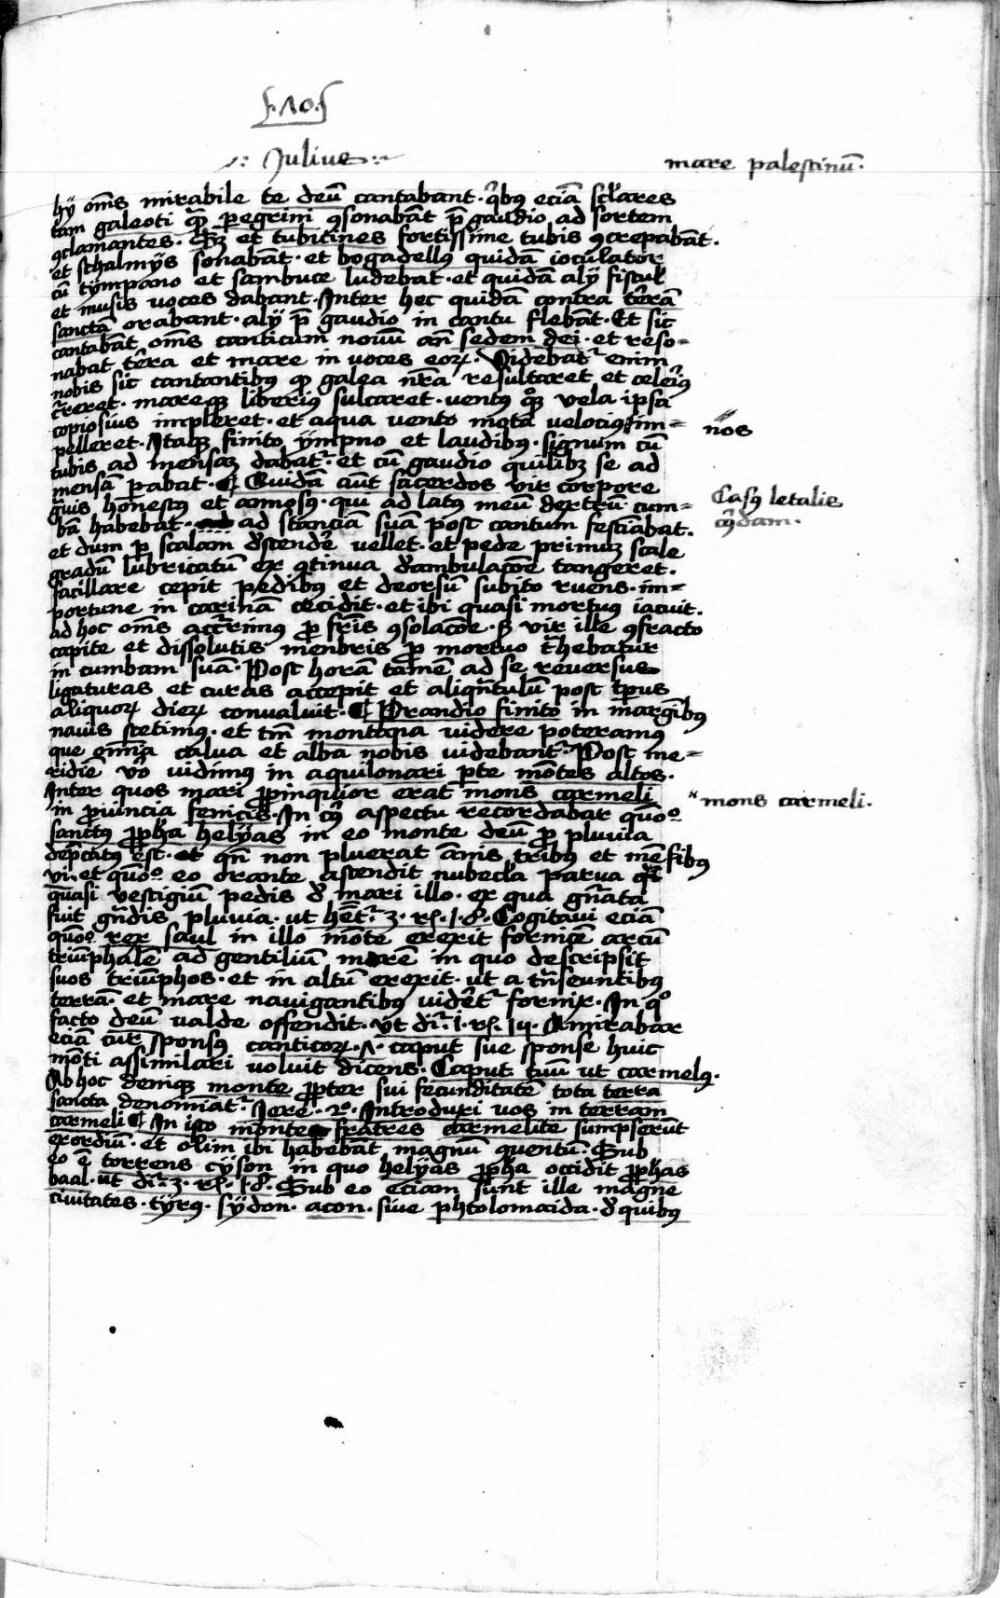 ·Iulius·
mare palestinū·
hÿ om̄s mirabile te deū cantabant· q̄bꝯ eciā sc̄lares
tam galeoti q̄ꝫ pegrini ꝯsonabāt p̄ gaudio ad sortem
ꝯclamantes· et tubicines fortissīme tubis ꝯcrepabāt·
et schalmÿs sonabāt· et bogadellꝯ quidā ioculator
cū tÿmpano et sambuce ludebat· et quidā alÿ fistul
et musis voces dabant· Inter hec quidā contra t̄rā
sanctā orabant· alÿ p̄ gaudio in cantu flebāt· Et sic
cantabāt om̄s canticum nouū an̄ sedem dei· et reso=
nabat t̄ra et mare in voces eoꝝ· Videbat᷑ enim
nobis sic cantantibꝯ ꝙ galea n̄ra resultaret et celeriꝯ
c̄reret· mareqꝫ liberiꝯ sulcaret· ventꝯ qꝫ vela ipsa
copiosius impleret· et aqua vento mota velociꝯ im=
nōs
pelleret· Itaqꝫ finito ÿmpno et laudibꝯ· signum cū
tubis ad mensaꝫ dabat᷑· et cū gaudio quilibꝫ se ad
mensā p̄abat· ¶ Quidā aūt sacerdos vir corpore
g̈uis honestꝯ et annosꝯ· qui ad latꝯ meū dextrū cum=
Casꝯ letalis
cꝯdam·
bā habebat· ad stanciā suā post cantum festīabat·
et dum ꝑ scalam d̄scendē vellet· et pede primuꝫ scale
gradū lubricatū ex ꝯtinua d̄ambulacōe tangeret·
facillare cepit pedibꝯ et deorsū subito ruens· im=
portune in carinā cecidit· et ibi quasi mortuꝯ iacuit·
ad hoc om̄s acc̄rimꝯ ꝓ fr̄is ꝯsolacōe· ꝫ vir ille ꝯfracto
capite et dissolutis menbris ꝓ mortuo t̄hebatur
in cumbam suā· Post horā tamē ad se reuersus
ligaturas et curas accepit et aliqn̄tulū post tp̄us
aliquoꝝ dieꝝ conualuit· ¶ Prandio finito in marginibꝯ
nauis stetimꝯ· et tn̄ montana videre poteramꝯ
que om̄ia calua et alba nobis videbant᷑· Post me=
ridiē v̄o vidimꝯ in aquilonari ꝑte mōtes altos·
Inter quos mari ꝓpinquior erat mons carmeli
mons carmeli·
in ꝓuincia fenicis· In cꝯ aspectu recordabar quōo
sanctꝯ ꝓpha helÿas in eo monte deū ꝓ pluuia
dep̄catꝯ est· et qn̄ non pluerat ānis tribꝯ et mēsibꝯ
vi· et quōo eo orante ascendit nubecla parua
quasi vestigiū pedis d̄ mari illo· ex qua gn̄ata
fuit gn̄dis pluuia· ut het᷑· 3· rꝭ· 18· Cogitaui eciā
quōo rex saul in illo mōte erexit fornicē arcū
triūphalē ad gentiliū morē in quo descripsit
suos triūphos· et in altū erexit· ut a tn̄seuntibꝯ
terrā· et mare nauigantibꝯ videt᷑ fornix· In qͦ
facto deū valde offendit· vt di᷑· 1· rꝭ· 15· Amirabar
eciā cur sponsꝯ canticoꝝ· 7· caput sue sponse huic
mōti assimilari voluit dicens· Caput tuū ut carmelꝯ·
Ab hoc deniqꝫ monte ꝓpter sui fecunditatē tota terra
sancta denomīat᷑· Iere· 2o· Introduxi vos in terram
carmeli ¶ In isto monte fratres carmelite sumpserūt
exordiū· et olim ibi habebāt magnū quentū· Sub
eo ē torrens cÿson in quo helÿas ꝓpha occidit ꝓphas
baal· ut di᷑· 3· rꝭ· 18· Sub eo eciam sunt ille magne
ciuitates· tÿrꝯ· sÿdon· acon· siue phtolomaida· d̄ quibꝯ